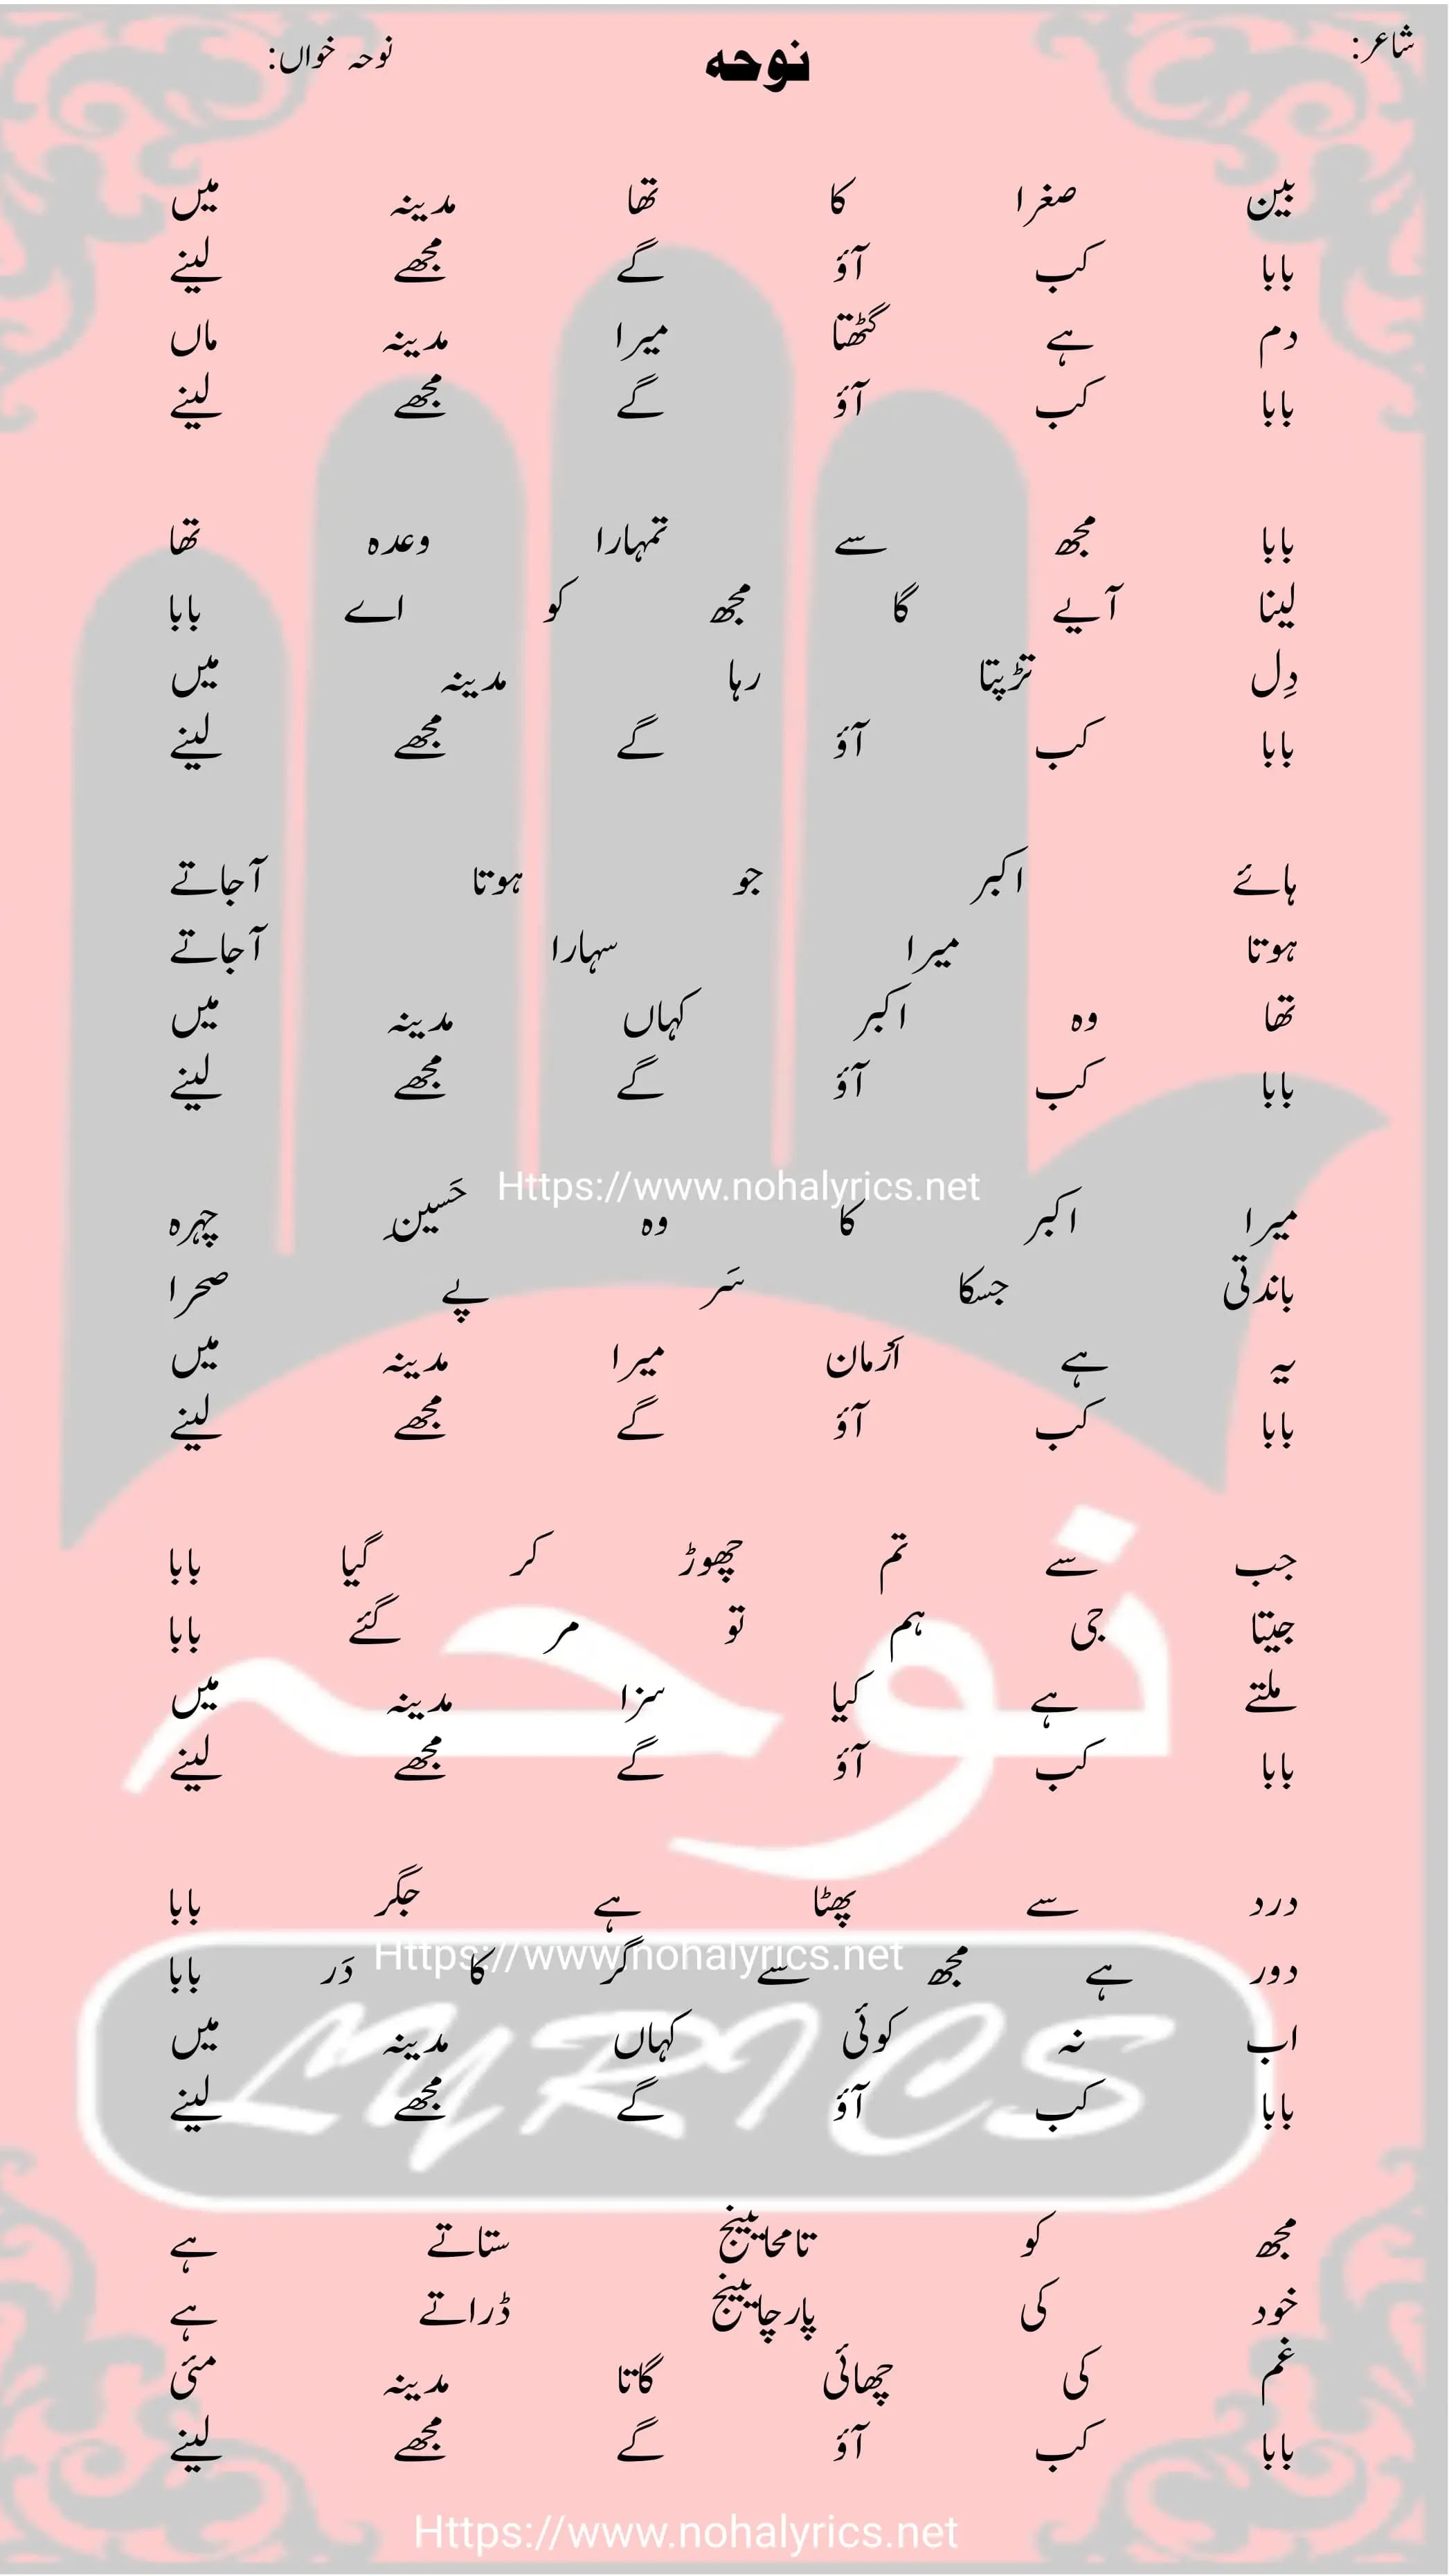 شاعر:
نوحہ
نوحہ خواں:
بین صغرا کا تھا مدینہ میں
بابا کب آؤ گے مجھے لینے
دم ہے گٹھتا میرا مدینہ ماں
بابا کب آؤ گے مجھے لینے
بابا مجھ سے تمہارا وعدہ تھا
لینا آیے گا مجھ کو اے بابا
دِل تڑپتا رہا مدینہ میں
بابا کب آؤ گے مجھے لینے
ہائے اکبر جو ہوتا آجاتے
ہوتا میرا سہارا آجاتے
تھا وہ اکبر کہاں مدینہ میں
بابا کب آؤ گے مجھے لینے
Https://www.nohalyrics.net
میرا اکبر کا وہ حَسین چہرہ
باندتی جسکا سَر پے صحرا
یہ ہے اَرْمان میرا مدینہ میں
بابا کب آؤ گے مجھے لینے
جب سے تم چھوڑ کر گیا بابا
جیتا جی ہم تو مر گئے بابا
ملتے ہے کیا سزا مدینہ میں
بابا کب آؤ گے مجھے لینے
نوحہ
درد سے پھٹا ہے جگر بابا
Https://www.nohalyrics.net
دور ہے مجھ سے گر کا دَر بابا
اب نہ کوئی کہاں مدینہ میں
بابا کب آؤ گے مجھے لینے
LYRICS
مجھ کو ستاتے ہے
خود کی ڈراتے ہے
غم کی چھائی گاتا مدینہ مئی
بابا کب آؤ گے مجھے لینے
Https://www.nohalyrics.net